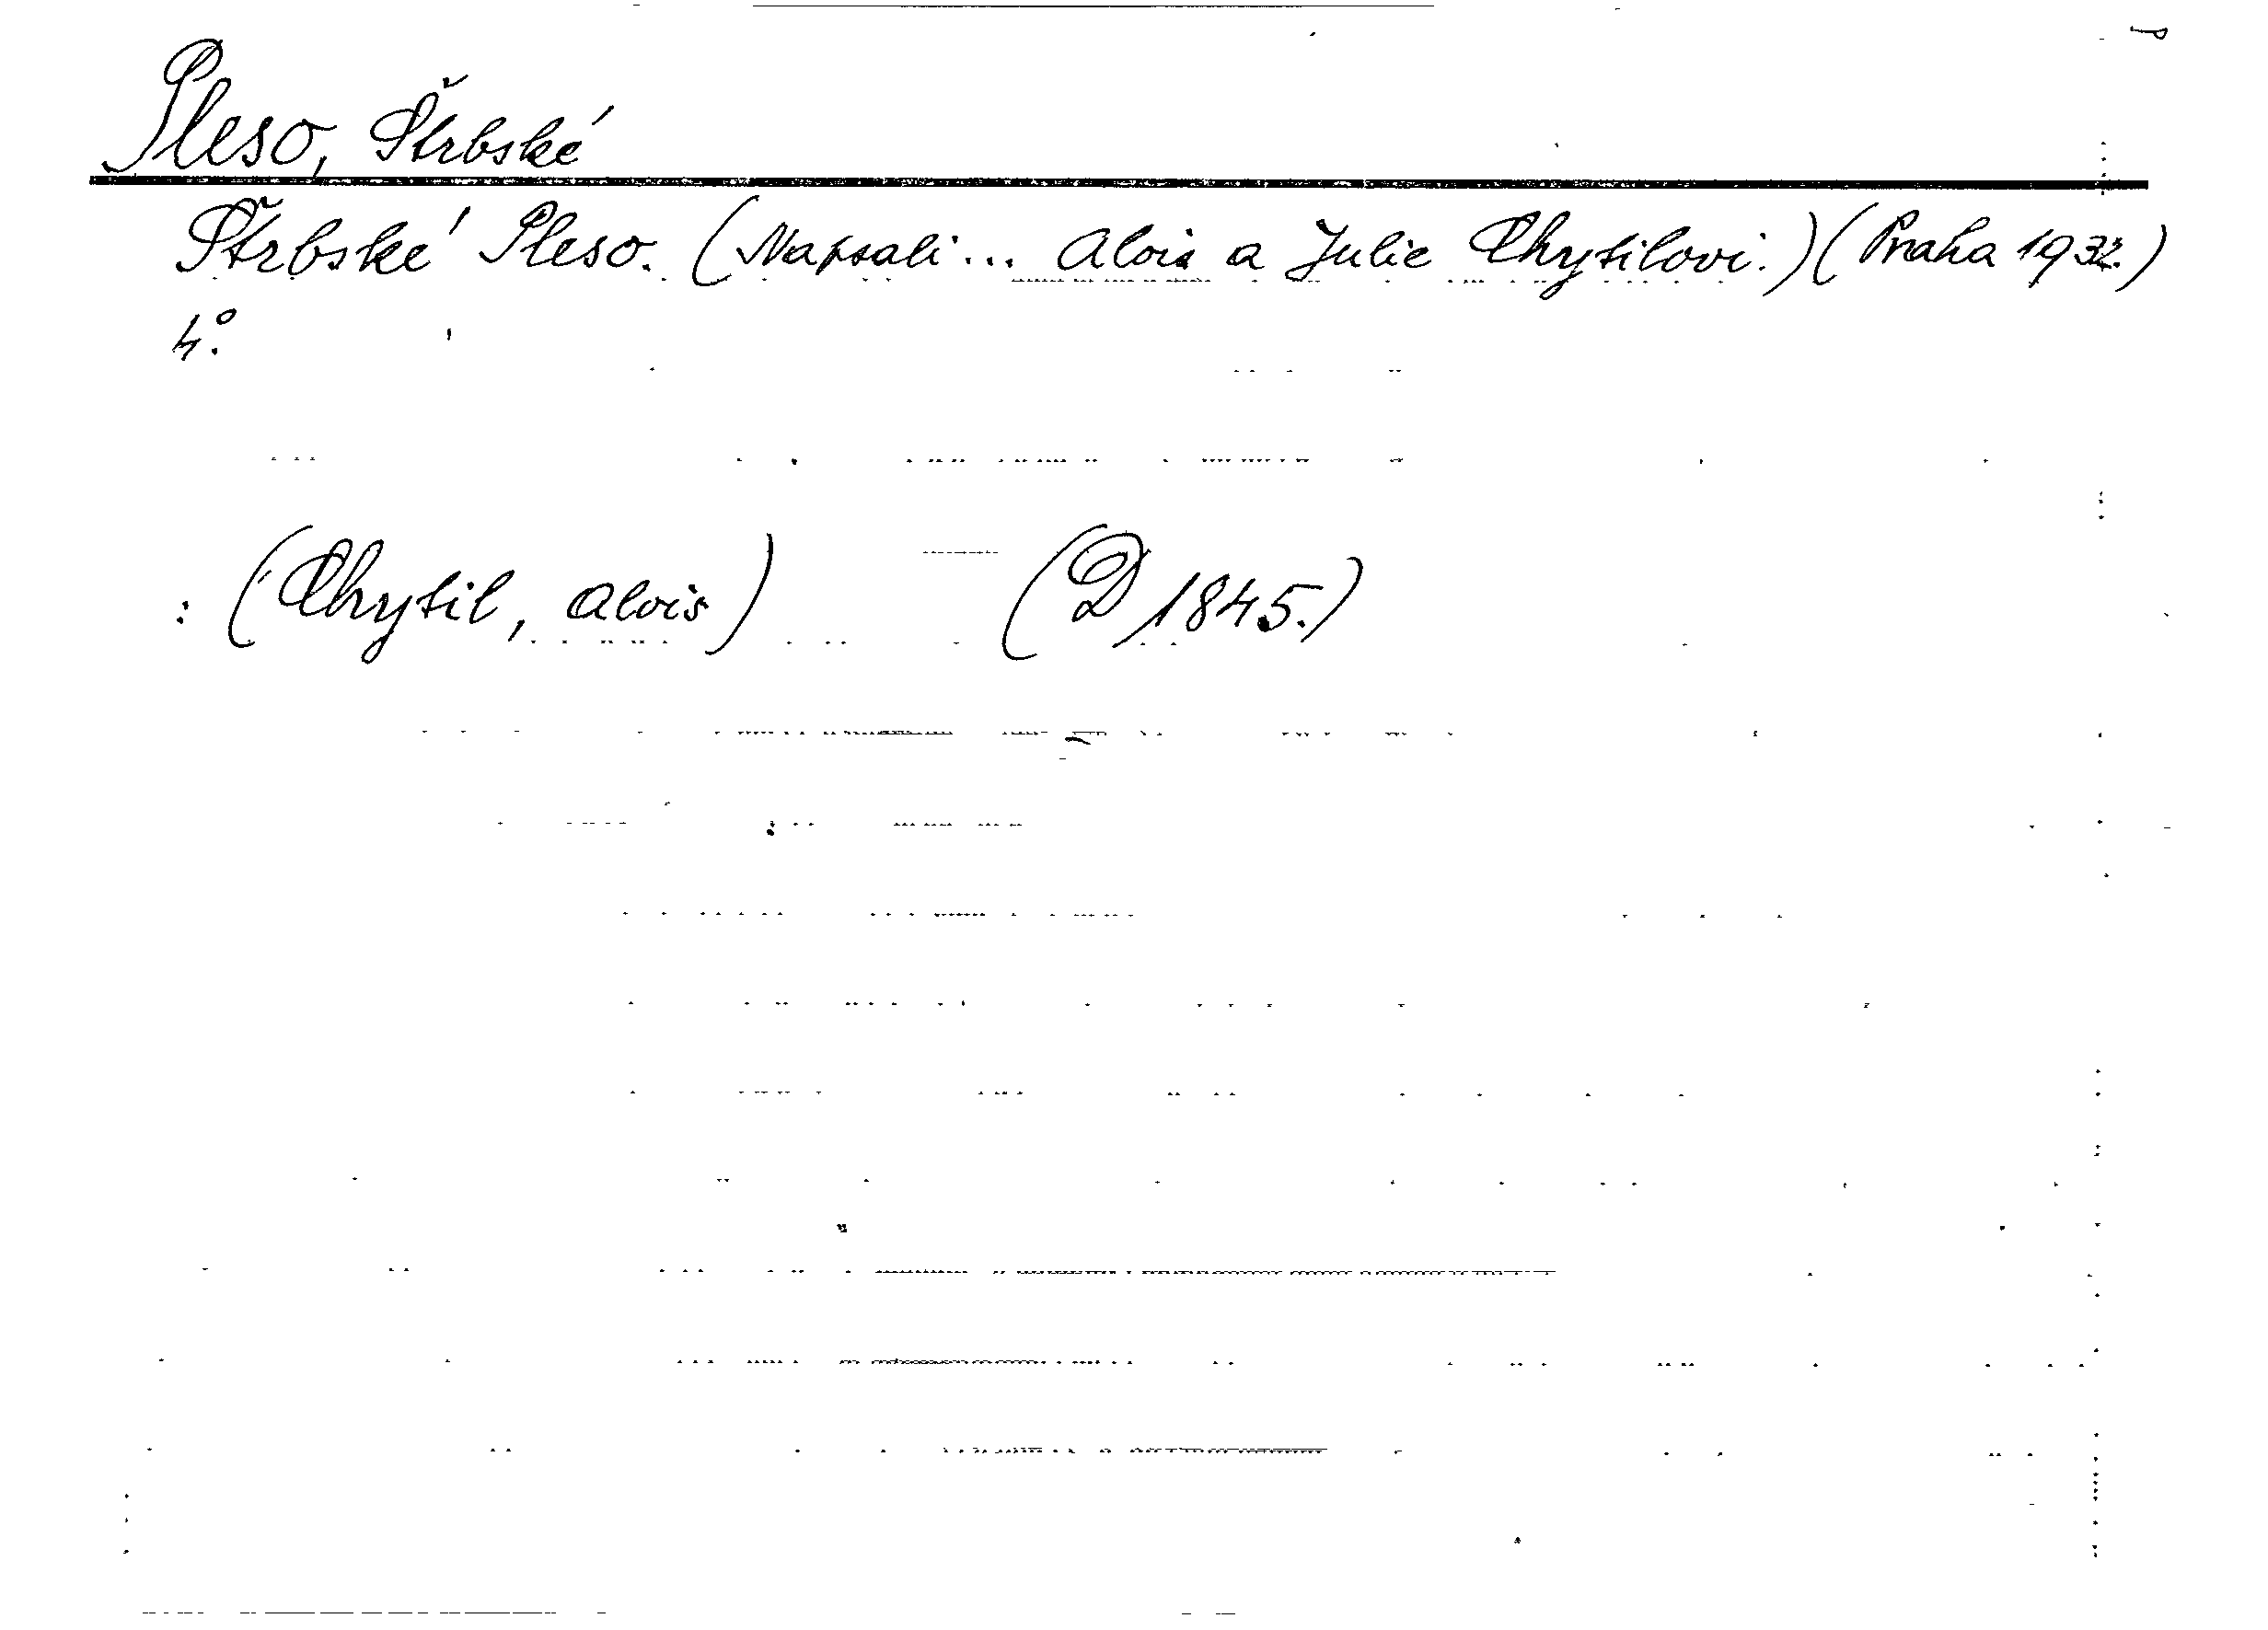 Pleso, Štrbské
Štrbské Pleso. (Napsali... Alois a Julie Chytilovi.) (Praha 1932.)
4°.
: (Chytil, Alois) (D 1845.)